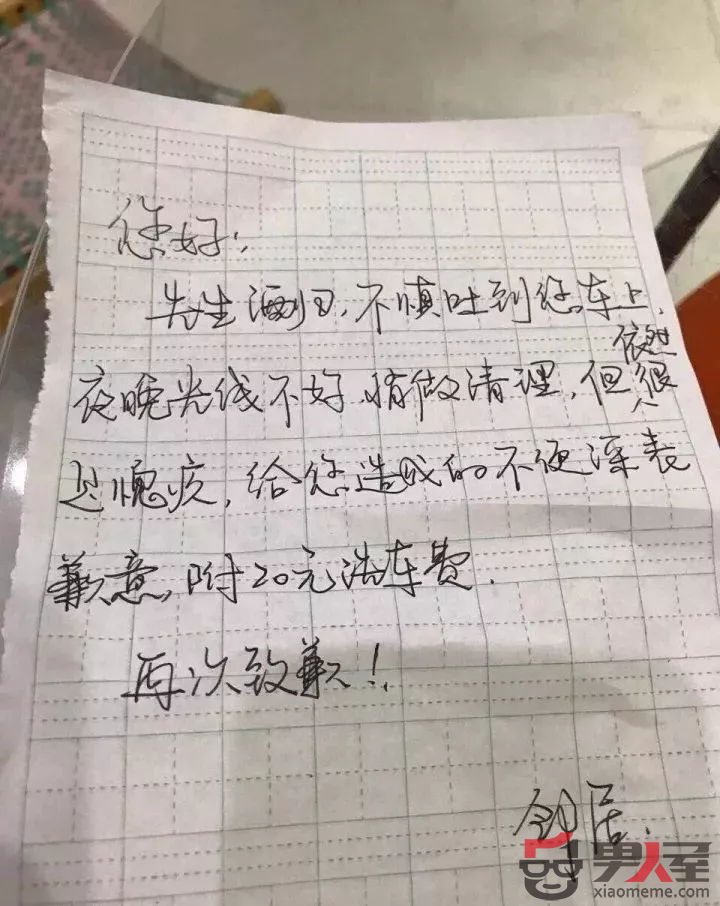 您好:
先生酒归,不慎吐到您车上,
依然
夜晚光线不好,稍做清理,但很
过愧疚,给您造成的不便深表
歉意,附20元洗车费.
再次致歉!
邻居.
男人屋
xiaomeme.com